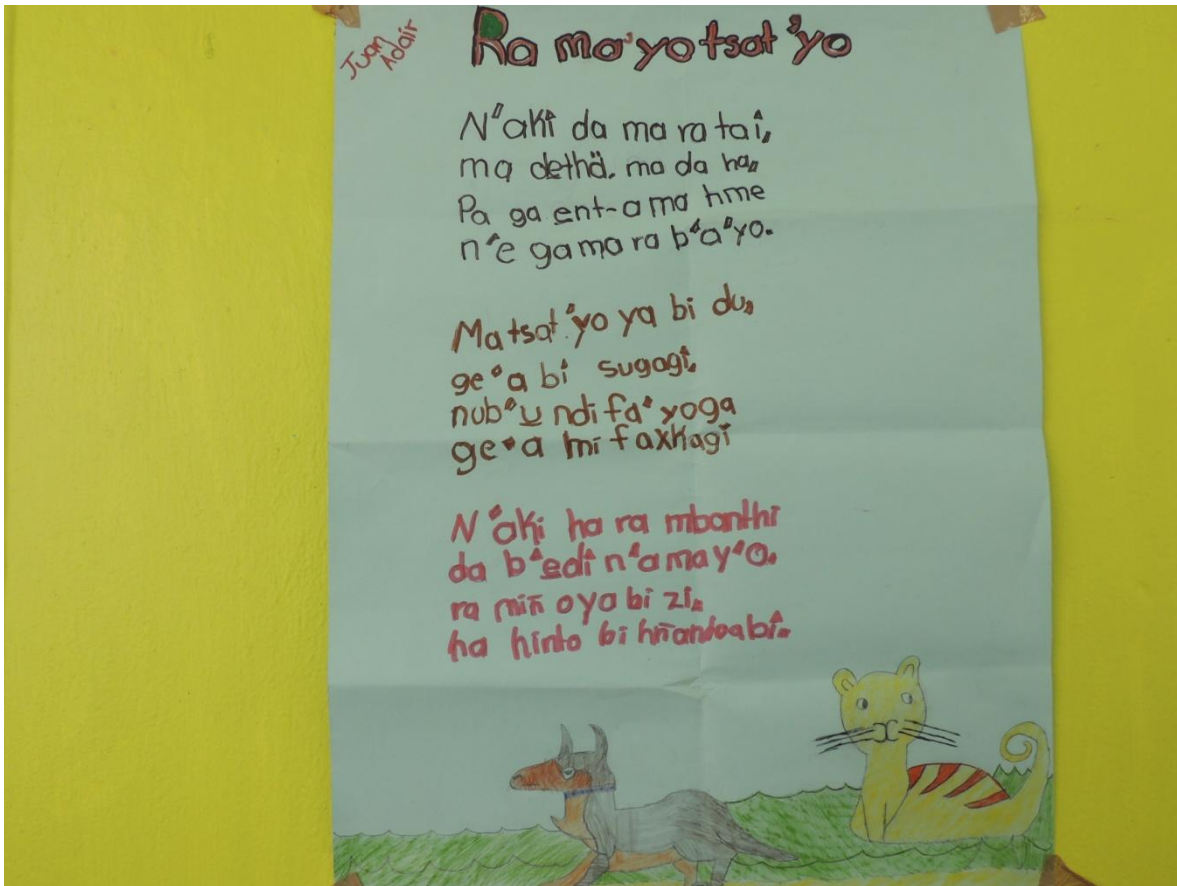 Juan
Adair
Ra ma'yo tsat'yo
N'aki da ma ra tai,
ma dethä, ma da ha,
Pa ga ent-a ma hme
n'e gama ra b'a'yo.
Ma tsat'yo ya bi du,
ge'a bi sugagi,
nub'u̲ ndi fa'yoga
ge'a mi faxkagi
N'aki ha ra mbonthi
da b'e̲di n'a ma y'o.
ra miñ oya bi zi,
ha hinto bi hñandoabi.